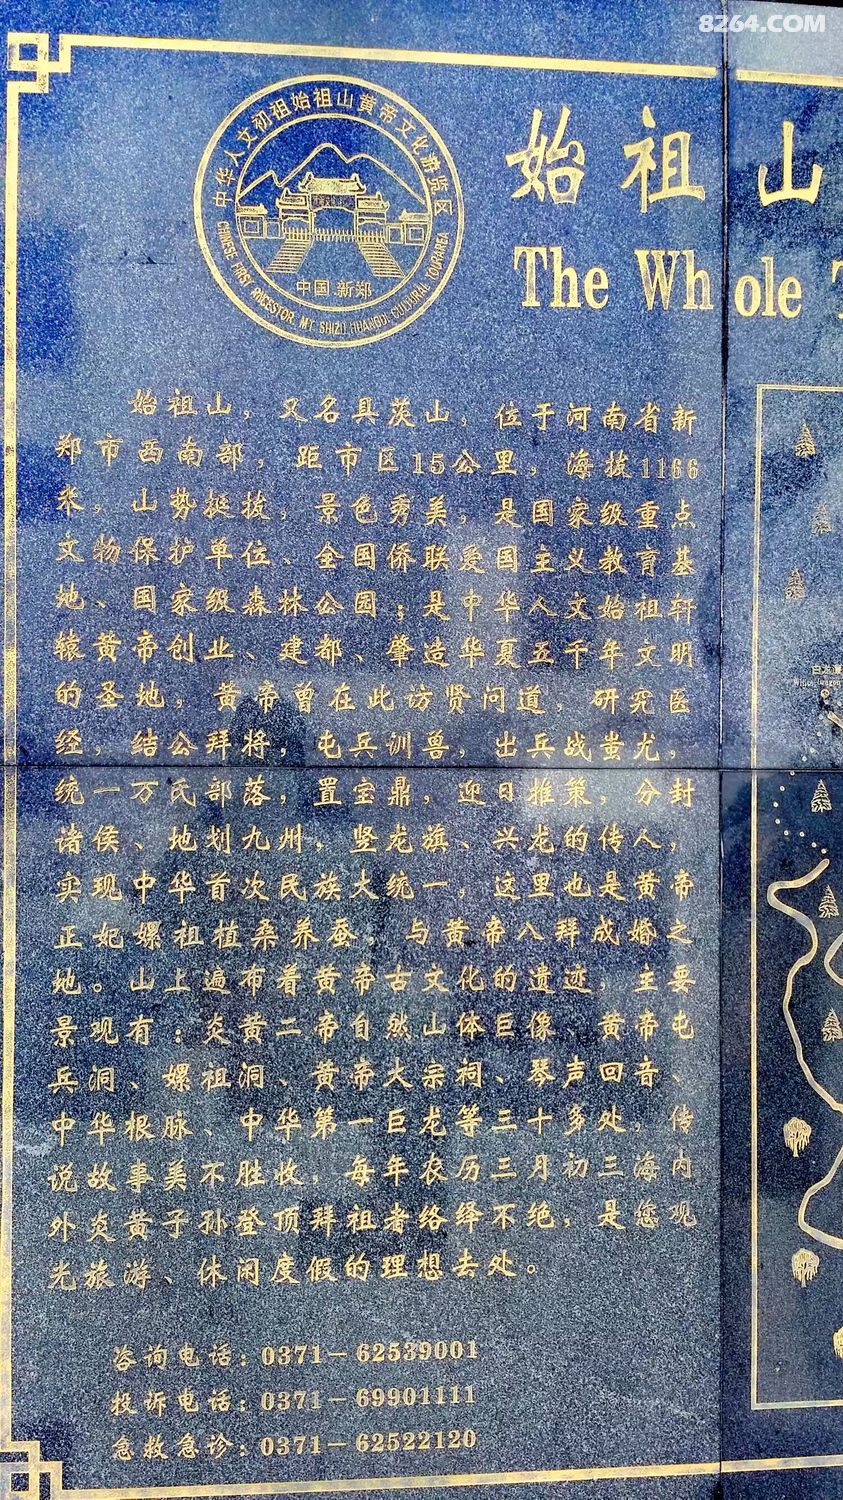 8264.COM
中华人文初祖始祖山黄帝文化游览区
中国.新郑
CHINESE FIRST ANCESTOR, MT SHIZU HUANGDI CULTURAL TOURAREA
始祖山
The Whole
始祖山，又名具茨山，位于河南省新
郑市西南部，距市区15公里，海拔1166
米，山势挺拔，景色秀美，是国家级重点
文物保护单位、全国侨联爱国主义教育基
地、国家级森林公园；是中华人文始祖轩
辕黄帝创业、建都、肇造华夏五千年文明
的圣地，黄帝曾在此访贤问道，研究医
经，结公拜将，屯兵训兽，出兵战蚩尤，
统一万氏部落，置宝鼎，迎日推策，分封
诸侯、地划九州，竖龙旗、兴龙的传人，
实现中华首次民族大统一，这里也是黄帝
正妃嫘祖植桑养蚕，与黄帝八拜成婚之
地。山上遍布着黄帝古文化的遗迹，主要
景观有：炎黄二帝自然山体巨像、黄帝屯
兵洞、嫘祖洞、黄帝大宗祠、琴声回音、
中华根脉、中华第一巨龙等三十多处，传
说故事美不胜收，每年农历三月初三海内
外炎黄子孙登顶拜祖者络绎不绝，是您观
光旅游、休闲度假的理想去处。
咨询电话：0371－62539001
投诉电话：0371－69901111
急救急诊：0371－62522120